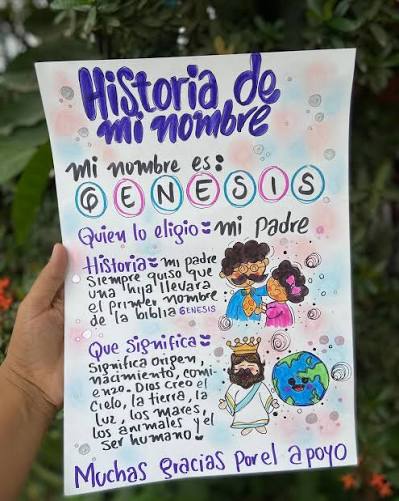 Historia de
mi nombre
mi nombre es:
GENESIS
Quien lo eligio: mi Padre
Historia: mi padre
siempre quiso que
una hija llevara
el primer nombre
de la biblia GENESIS
Que significa:
Significa origen,
nacimiento, comi-
enzo. Dios creo el
cielo, la tierra, la
luz, los mares,
los animales y el
ser humano.
Muchas gracias por el apoyo